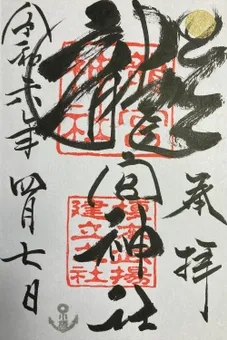 奉拝
龍宮神社
令和六年四月七日
龍宮
神社
榎本武揚
建立之社